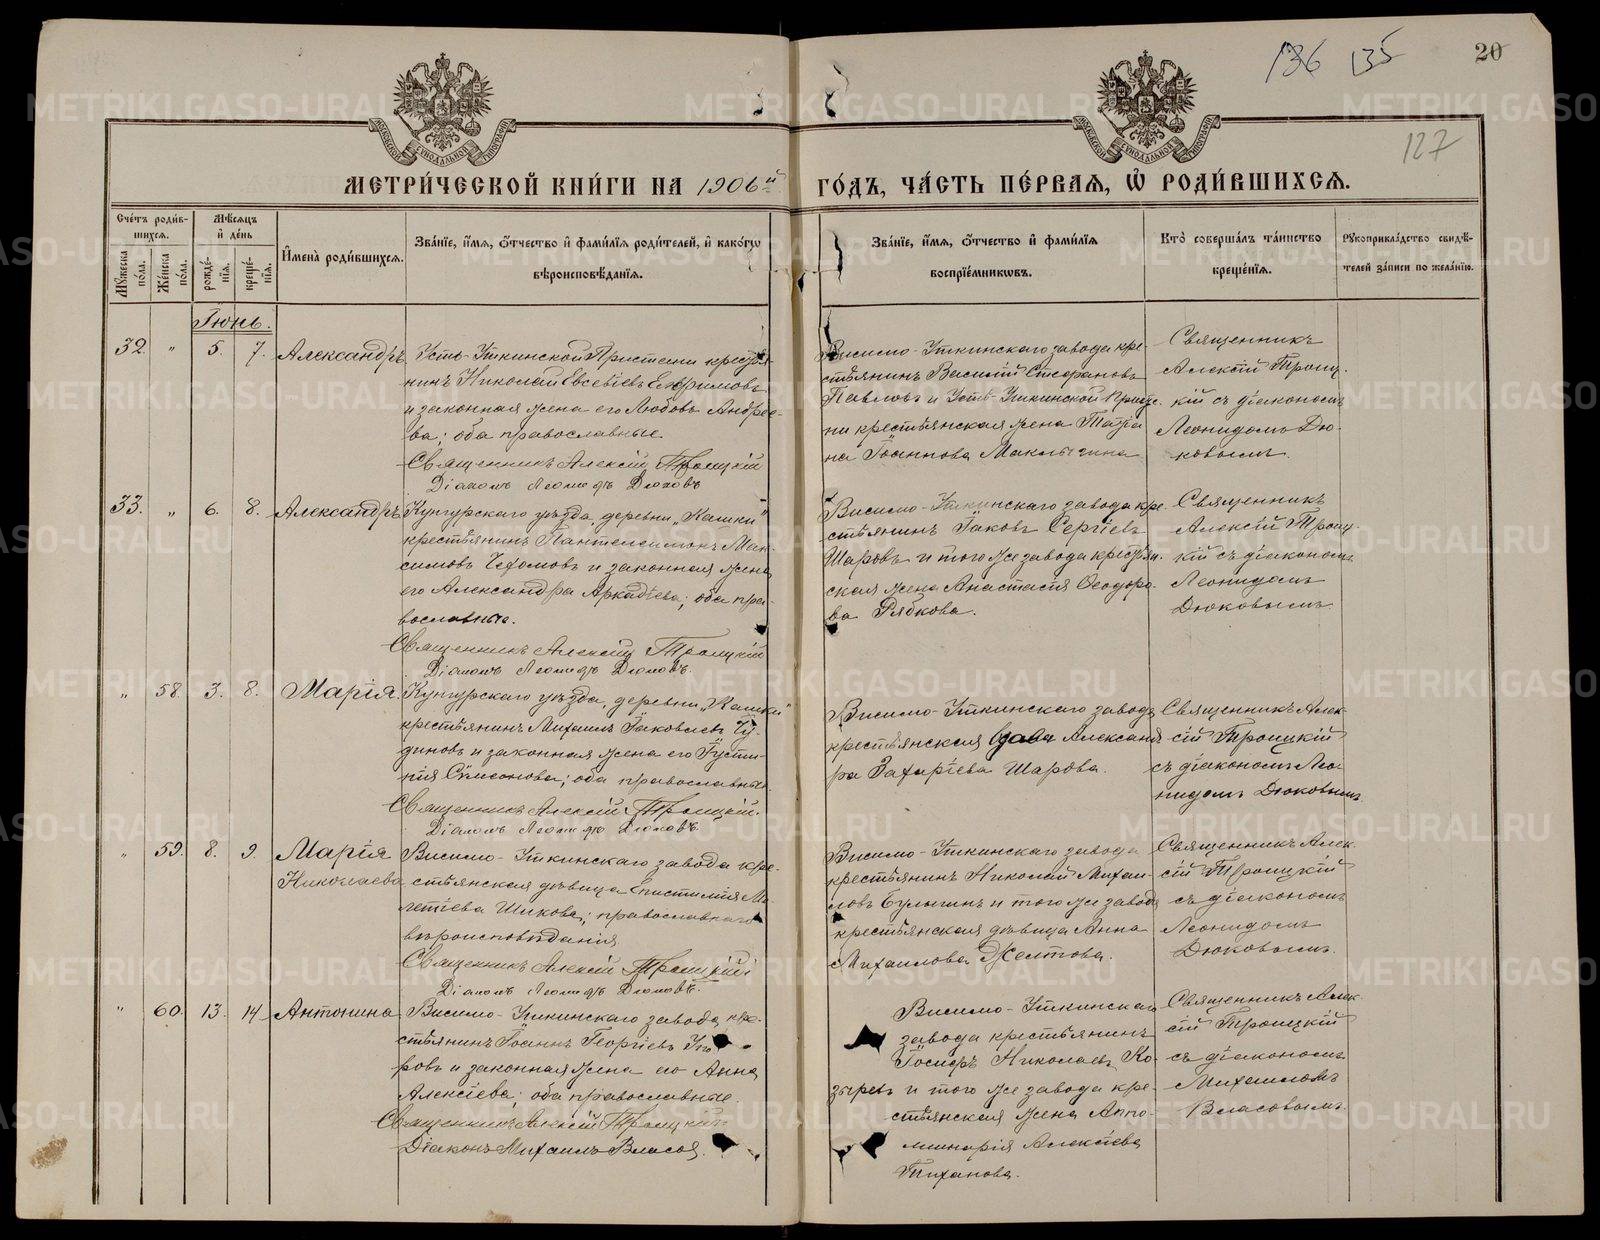 136 135 20
127
МЕТРИ́ЧЕСКОЙ КНИ́ГИ НА 1906й ГО́ДЪ, ЧА́СТЬ ПЕ́РВАЯ, Ѡ҆ РОДИ́ВШИХСЯ.
Сче́тъ роди́в-
шихся.
Мꙋ́жеска по́ла.
Же́нска по́ла.
Мѣ́сяцъ
и҆ де́нь
рожде́-
нїя.
креще́-
нїя.
И҆мена̀ роди́вшихся.
Зва́нїе, и҆́мя, ѻ҆́тчество и҆ фами́лїя роди́телей, и҆ како́гѡ
вѣроисповѣ́данїя.
Зва́нїе, и҆́мя, ѻ҆́тчество и҆ фами́лїя
воспрїе́мникѡвъ.
Кто̀ соверша́лъ та́инство
креще́нїя.
Рꙋкоприкла́дство свидѣ́-
телей за́писи по жела́нїю.
Іюнь.
32. " 5. 7. Александръ
Усть-Уткинской Пристани крестья-
нинъ Николай Евсевіевъ Ефримовъ
и законная жена его Любовь Андрее-
ва; оба православные.
Священникъ Алексій Троицкій
Діаконъ Леонидъ Дюковъ
Висимо-Уткинскаго завода кре-
стьянинъ Василій Стефановъ
Павловъ и Усть-Уткинской Приста-
ни крестьянская жена Татіа
на Іоаннова Маклыгина
Священникъ
Алексій Троиц-
кій съ діакономъ
Леонидомъ Дю-
ковымъ.
33. " 6. 8. Александръ
Кунгурскаго уѣзда, деревни "Кашки"
крестьянинъ Пантелеимонъ Мак-
симовъ Чефомовъ и законная жена
его Александра Аркадіева; оба пра-
вославные.
Священникъ Алексій Троицкій
Діаконъ Леонидъ Дюковъ.
Висимо-Уткинскаго завода кре-
стьянинъ Іаковъ Сергіевъ
Шаровъ и того же завода крестьян-
ская жена Анастасія Ѳеодоро-
ва Рябкова.
Священникъ
Алексій Троиц-
кій съ діакономъ
Леонидомъ
Дюковымъ
" 58. 3. 8. Марія
Кунгурскаго уѣзда, деревни "Кашки"
крестьянинъ Михаилъ Іаковлевъ Чу-
диновъ и законная жена его Іусти-
нія Сѵмеонова; оба православные.
Священникъ Алексій Троицкій.
Діаконъ Леонидъ Дюковъ.
Висимо-Уткинскаго завода
крестьянская вдова Александ-
ра Захаріева Шарова.
Священникъ Алек-
сій Троицкій
съ діакономъ Лео-
нидомъ Дюковымъ
" 59. 8. 9. Марія
Николаева
Висимо-Уткинскаго завода кре-
стьянская дѣвица Епистимія Ме-
летіева Шикова; православнаго
вѣроисповѣданія
Священникъ Алексій Троицкій
Діаконъ Леонидъ Дюковъ.
Висимо-Уткинскаго завода
крестьянинъ Николай Михаи-
ловъ Булыгинъ и того же завода
крестьянская дѣвица Анна
Михаилова Желтова.
Священникъ Алек-
сій Троицкій
съ діакономъ
Леонидомъ
Дюковымъ.
" 60. 13. 14 Антонина
Висимо-Уткинскаго завода кре-
стьянинъ Іоаннъ Георгіевъ
ровъ и законная жена его Анна
Алексіева; оба православные.
Священникъ Алексій Троицкій
Діаконъ Михаилъ Власов.
Висимо-Уткинскаго
завода крестьянинъ
Іосифъ Николаевъ Ко-
зыревъ и того же завода кре-
стьянская жена Аппо-
линарія Алексіева
Тиханова.
Священникъ Алек-
сій Троицкій
съ діакономъ
Михаиломъ
Власовымъ.
METRIKI.GASO-URAL.RU